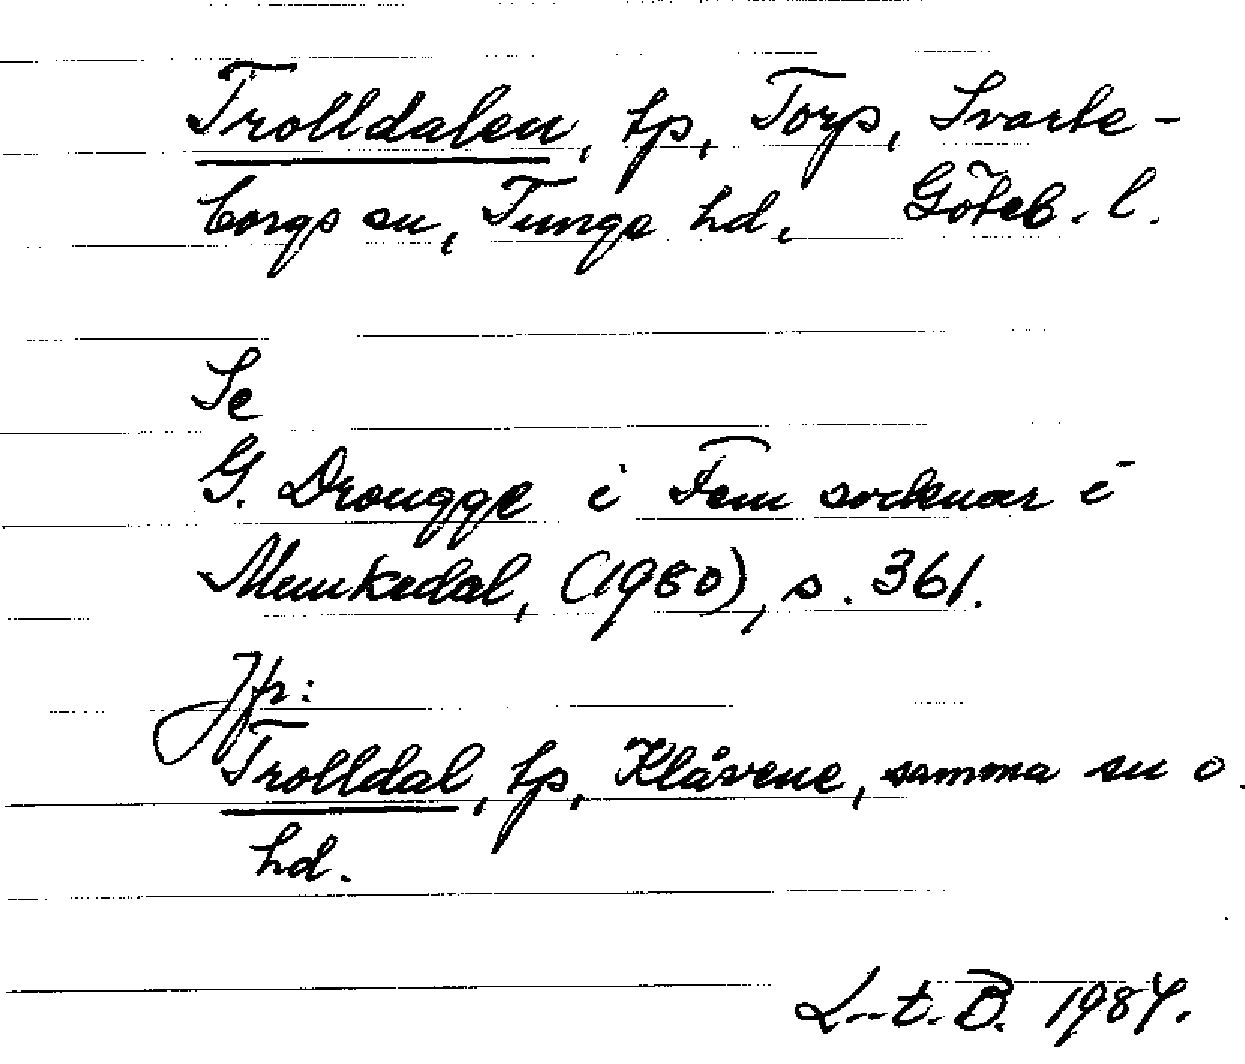 Trolldalen, tp, Torp, Svarte-
borgs sn, Tunge hd, Göteb. l.
Se
G. Drougge i Fem socknar i
Munkedal, (1980), s. 361.
Jfr:
Trolldal, tp, Klåvene, samma sn o
hd.
L-t. B. 1984.